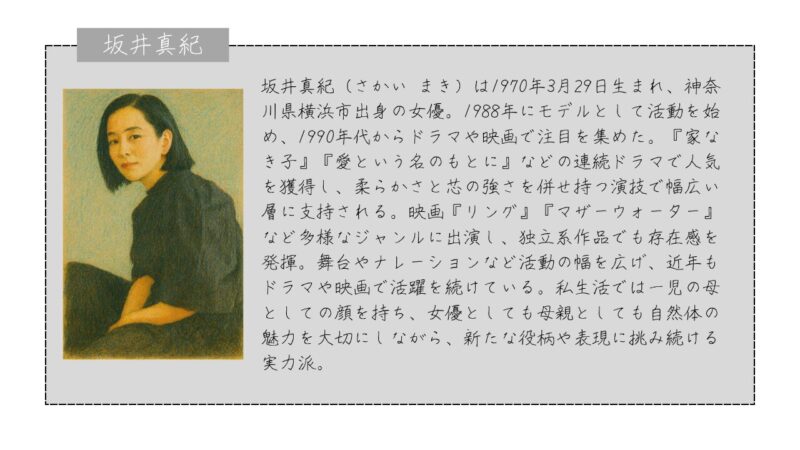 坂井真紀
坂井真紀（さかい まき）は1970年3月29日生まれ、神奈
川県横浜市出身の女優。1988年にモデルとして活動を始
め、1990年代からドラマや映画で注目を集めた。『家な
き子』『愛という名のもとに』などの連続ドラマで人気
を獲得し、柔らかさと芯の強さを併せ持つ演技で幅広い
層に支持される。映画『リング』『マザーウォーター』
など多様なジャンルに出演し、独立系作品でも存在感を
発揮。舞台やナレーションなど活動の幅を広げ、近年も
ドラマや映画で活躍を続けている。私生活では一児の母
としての顔を持ち、女優としても母親としても自然体の
魅力を大切にしながら、新たな役柄や表現に挑み続ける
実力派。